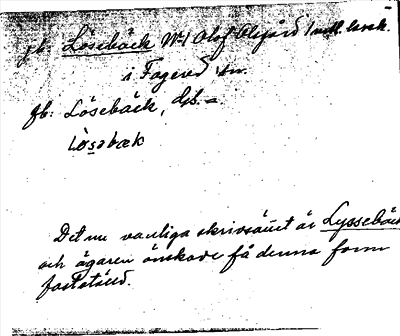 jb. Lösebäck Nr 1 Olof Olsgård
i Fagered sn.
jb: Lösebäck, ds. =
Lösəbæk
Det nu vanliga skrivsättet är Lyssebäck
och ägaren önskade få denna form
fastställd.